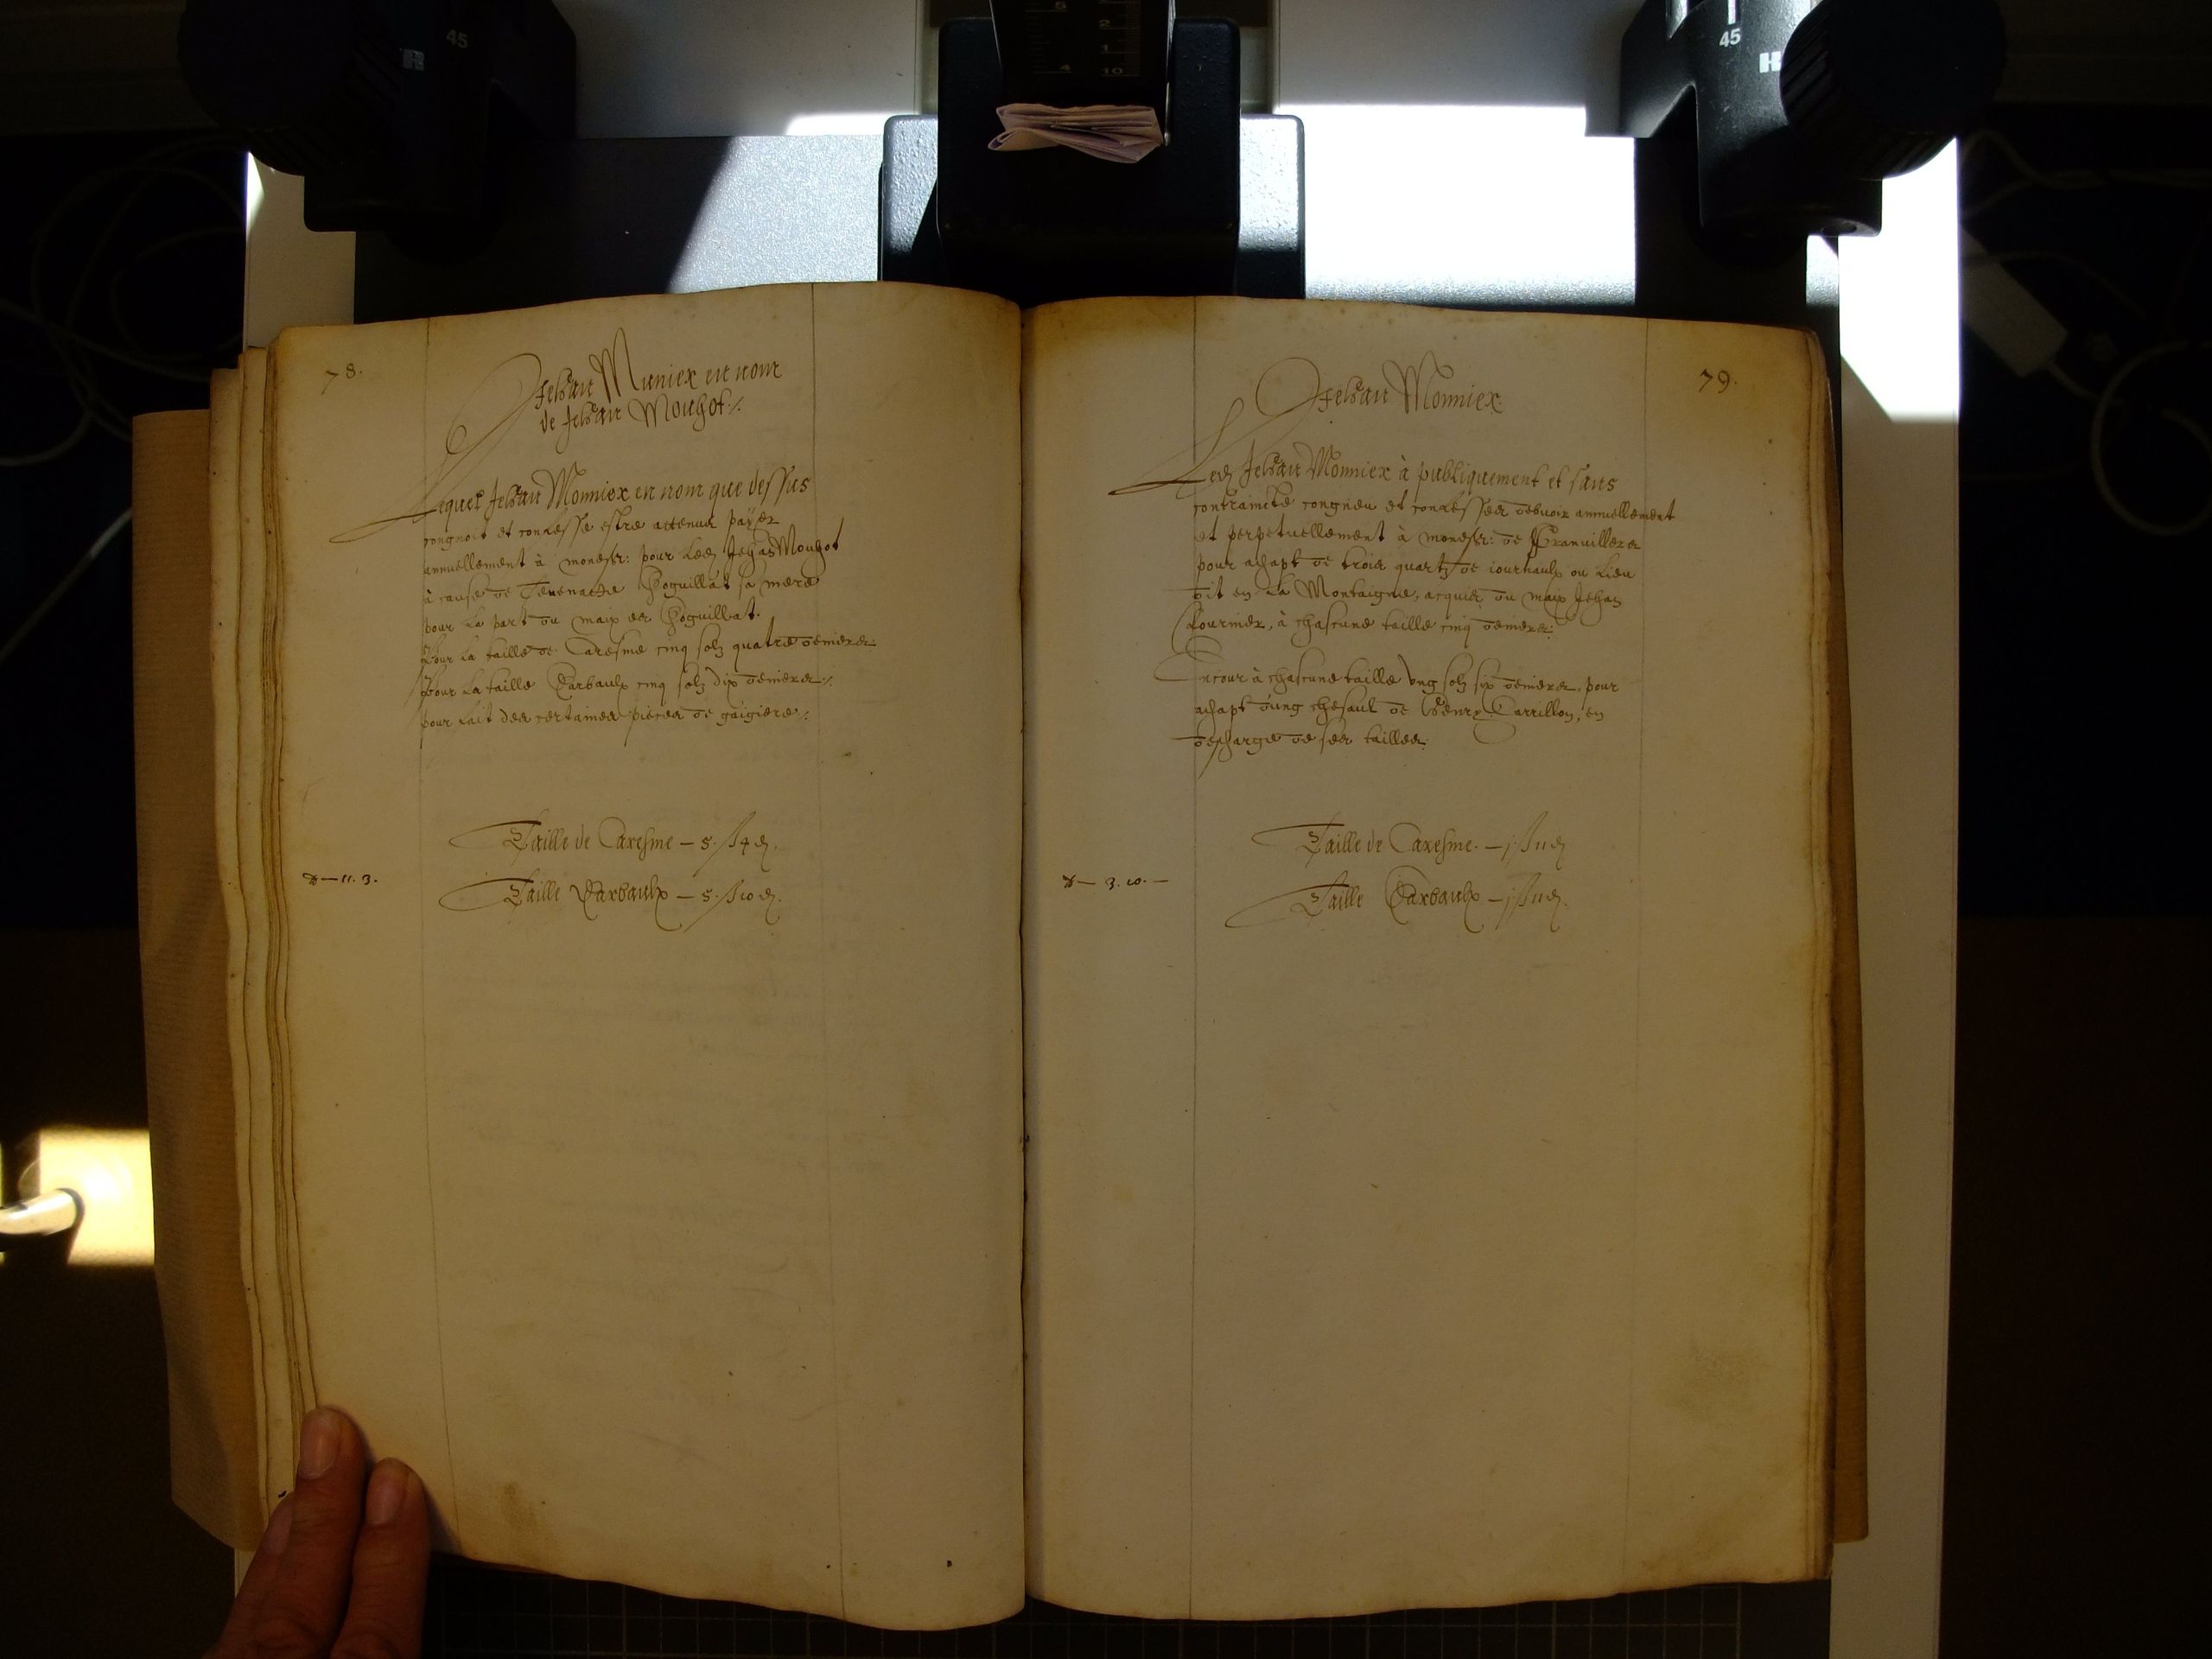 78.
Jehan Muniex en nom
de Jehan Mouhot ./.
Lequel Jehan Monniex en nom que dessus
congnoit et confesse estre attenu payer
annuellement à monssr: pour led Jehan Mouhot
à cause de Thevenatte Hoguillat sa mere
pour la part du maix es Hoguillat.
Pour la taille de Caresme cinq solz quatre deniers
Pour la taille Darbaulx cinq solz dix deniers ./.
pour fait des certaines pieces de gaigiere ./.
Taille de Caresme — 5. s 4 d.
— 11. 3.
Taille Darbaulx — 5. s 10 d.
79.
Jehan Monniex
Led Jehan Monniex à publiquement et sans
contraincte congneu et confesser debvoir annuellement
et perpetuellement à monssr: de Granvilleres
pour achapt de trois quartz de iournaulx ou lieu
dit en la Montaigne, acquis du maix Jehan
Fournier, à chascune taille cinq deniers.
Encour à chascune taille ung solz six deniers, pour
achapt d'ung chesaul de Henry Carrillon, en
descharge de ses tailles.
Taille de Caresme. — j s 11 d
— 3. 10. —
Taille Darbaulx — j s 11 d.
45
45